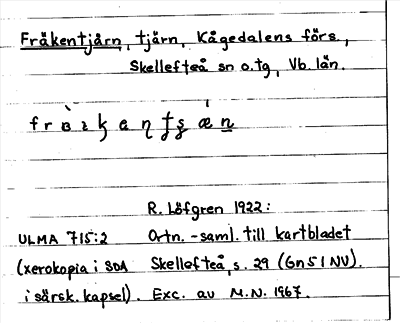 Fräkentjärn, tjärn, Kågedalens förs.,
Skellefteå sn o.tg, Vb. län.
R. Löfgren 1922:
ULMA 715:2 Ortn.-saml. till kartbladet
(xerokopia i SOA Skellefteå, s. 29 (Gn 51 NV).
i särsk. kapsel). Exc. av M.N. 1967.